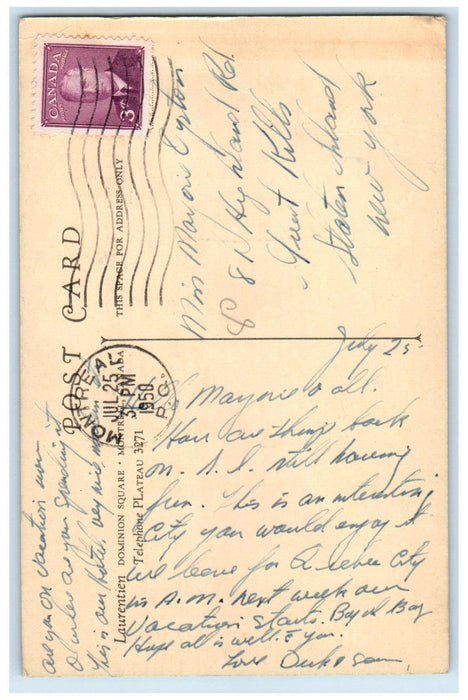 CANADA
3¢
POST CARD
THIS SPACE FOR ADDRESS ONLY
MONTREAL
JUL 25
PM
1950
P.Q.
Laurentien DOMINION SQUARE • MONTREAL CANADA
Telephone PLATEAU 3271
Miss Marjorie
8 Highland Rd.
Great Kills
Staten Island
New York
July 25
Marjorie & all.
How are things back
on S. I. still having
fun. This is an interesting
City you would enjoy it
We leave for Quebec City
in A.M. next week our
Vacation starts. Boy oh Boy
Hope all is well & you.
Love Duke & Sam
are you on vacation now
or when are you spending it
This is our hotel. very nice